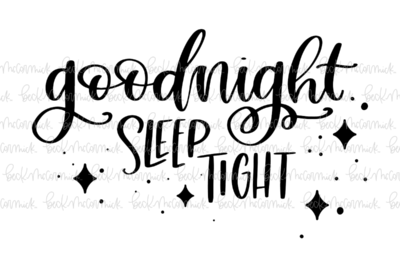 goodnight
SLEEP
TIGHT